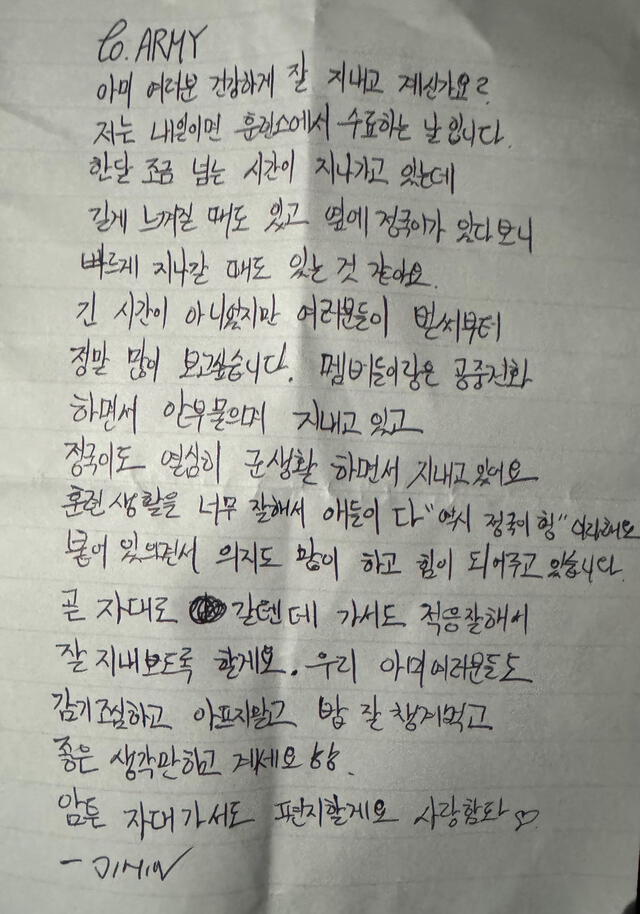 to. ARMY
아미 여러분 건강하게 잘 지내고 계신가요?
저는 내일이면 훈련소에서 수료하는 날입니다.
한달 조금 넘는 시간이 지나가고 있는데
길게 느껴질 때도 있고 옆에 정국이가 있다보니
빠르게 지나갈 때도 있는 것 같아요.
긴 시간이 아니였지만 여러분들이 벌써부터
정말 많이 보고싶습니다. 멤버들이랑은 공중전화
하면서 안부물으며 지내고 있고
정국이도 열심히 군생활 하면서 지내고있어요
훈련 생활을 너무 잘해서 애들이 다 "역시 정국이 형" 이라해요
붙어 있으면서 의지도 많이 하고 힘이 되어주고 있습니다.
곧 자대로 갈텐데 가서도 적응잘해서
잘 지내보도록 할게요. 우리 아미여러분들도
감기조심하고 아프지말고 밥 잘 챙겨먹고
좋은 생각만하고 계세요 ㅎㅎ.
암튼 자대가서도 편지할게요 사랑함돠 ♡
- JIMIN